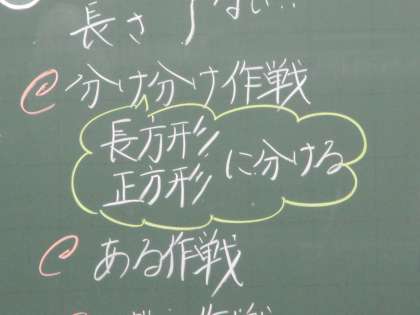 長さ ない!!
分け分け作戦
長方形
正方形 に分ける
ある作戦
作戦